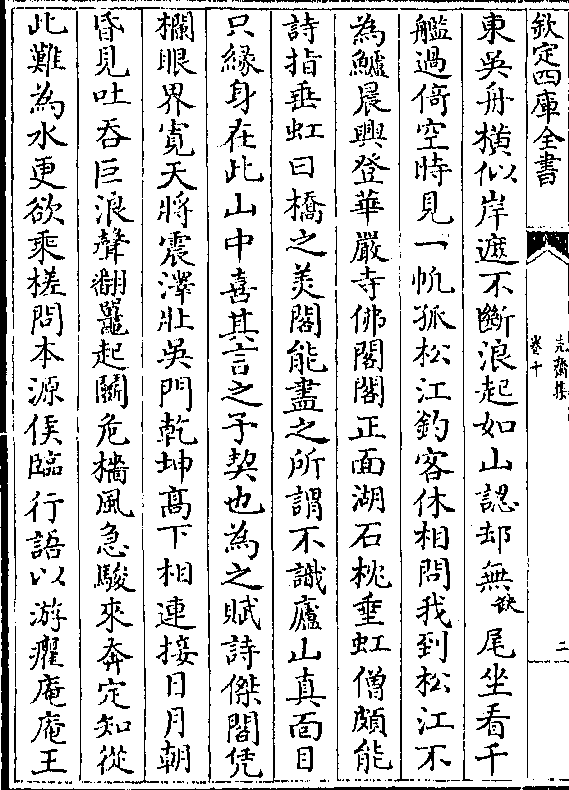 欽定四庫全書
克齋集
卷十
二
東吳舟橫似岸遮不斷浪起如山認却無缺尾坐看千
艦過倚空時見一帆孤松江釣客休相問我到松江不
為鱸晨興登華嚴寺佛閣閣正面湖石枕垂虹僧頗能
詩指垂虹曰橋之美閣能盡之所謂不識廬山真面目
只緣身在此山中喜其言之予契也為之賦詩傑閣凭
欄眼界寛天將震澤壯吳門乾坤髙下相連接日月朝
昏見吐吞巨浪聲翻鼉起鬬危檣風急駿來奔定知從
此難為水更欲乘槎問本源俟臨行語以游癯庵庵王